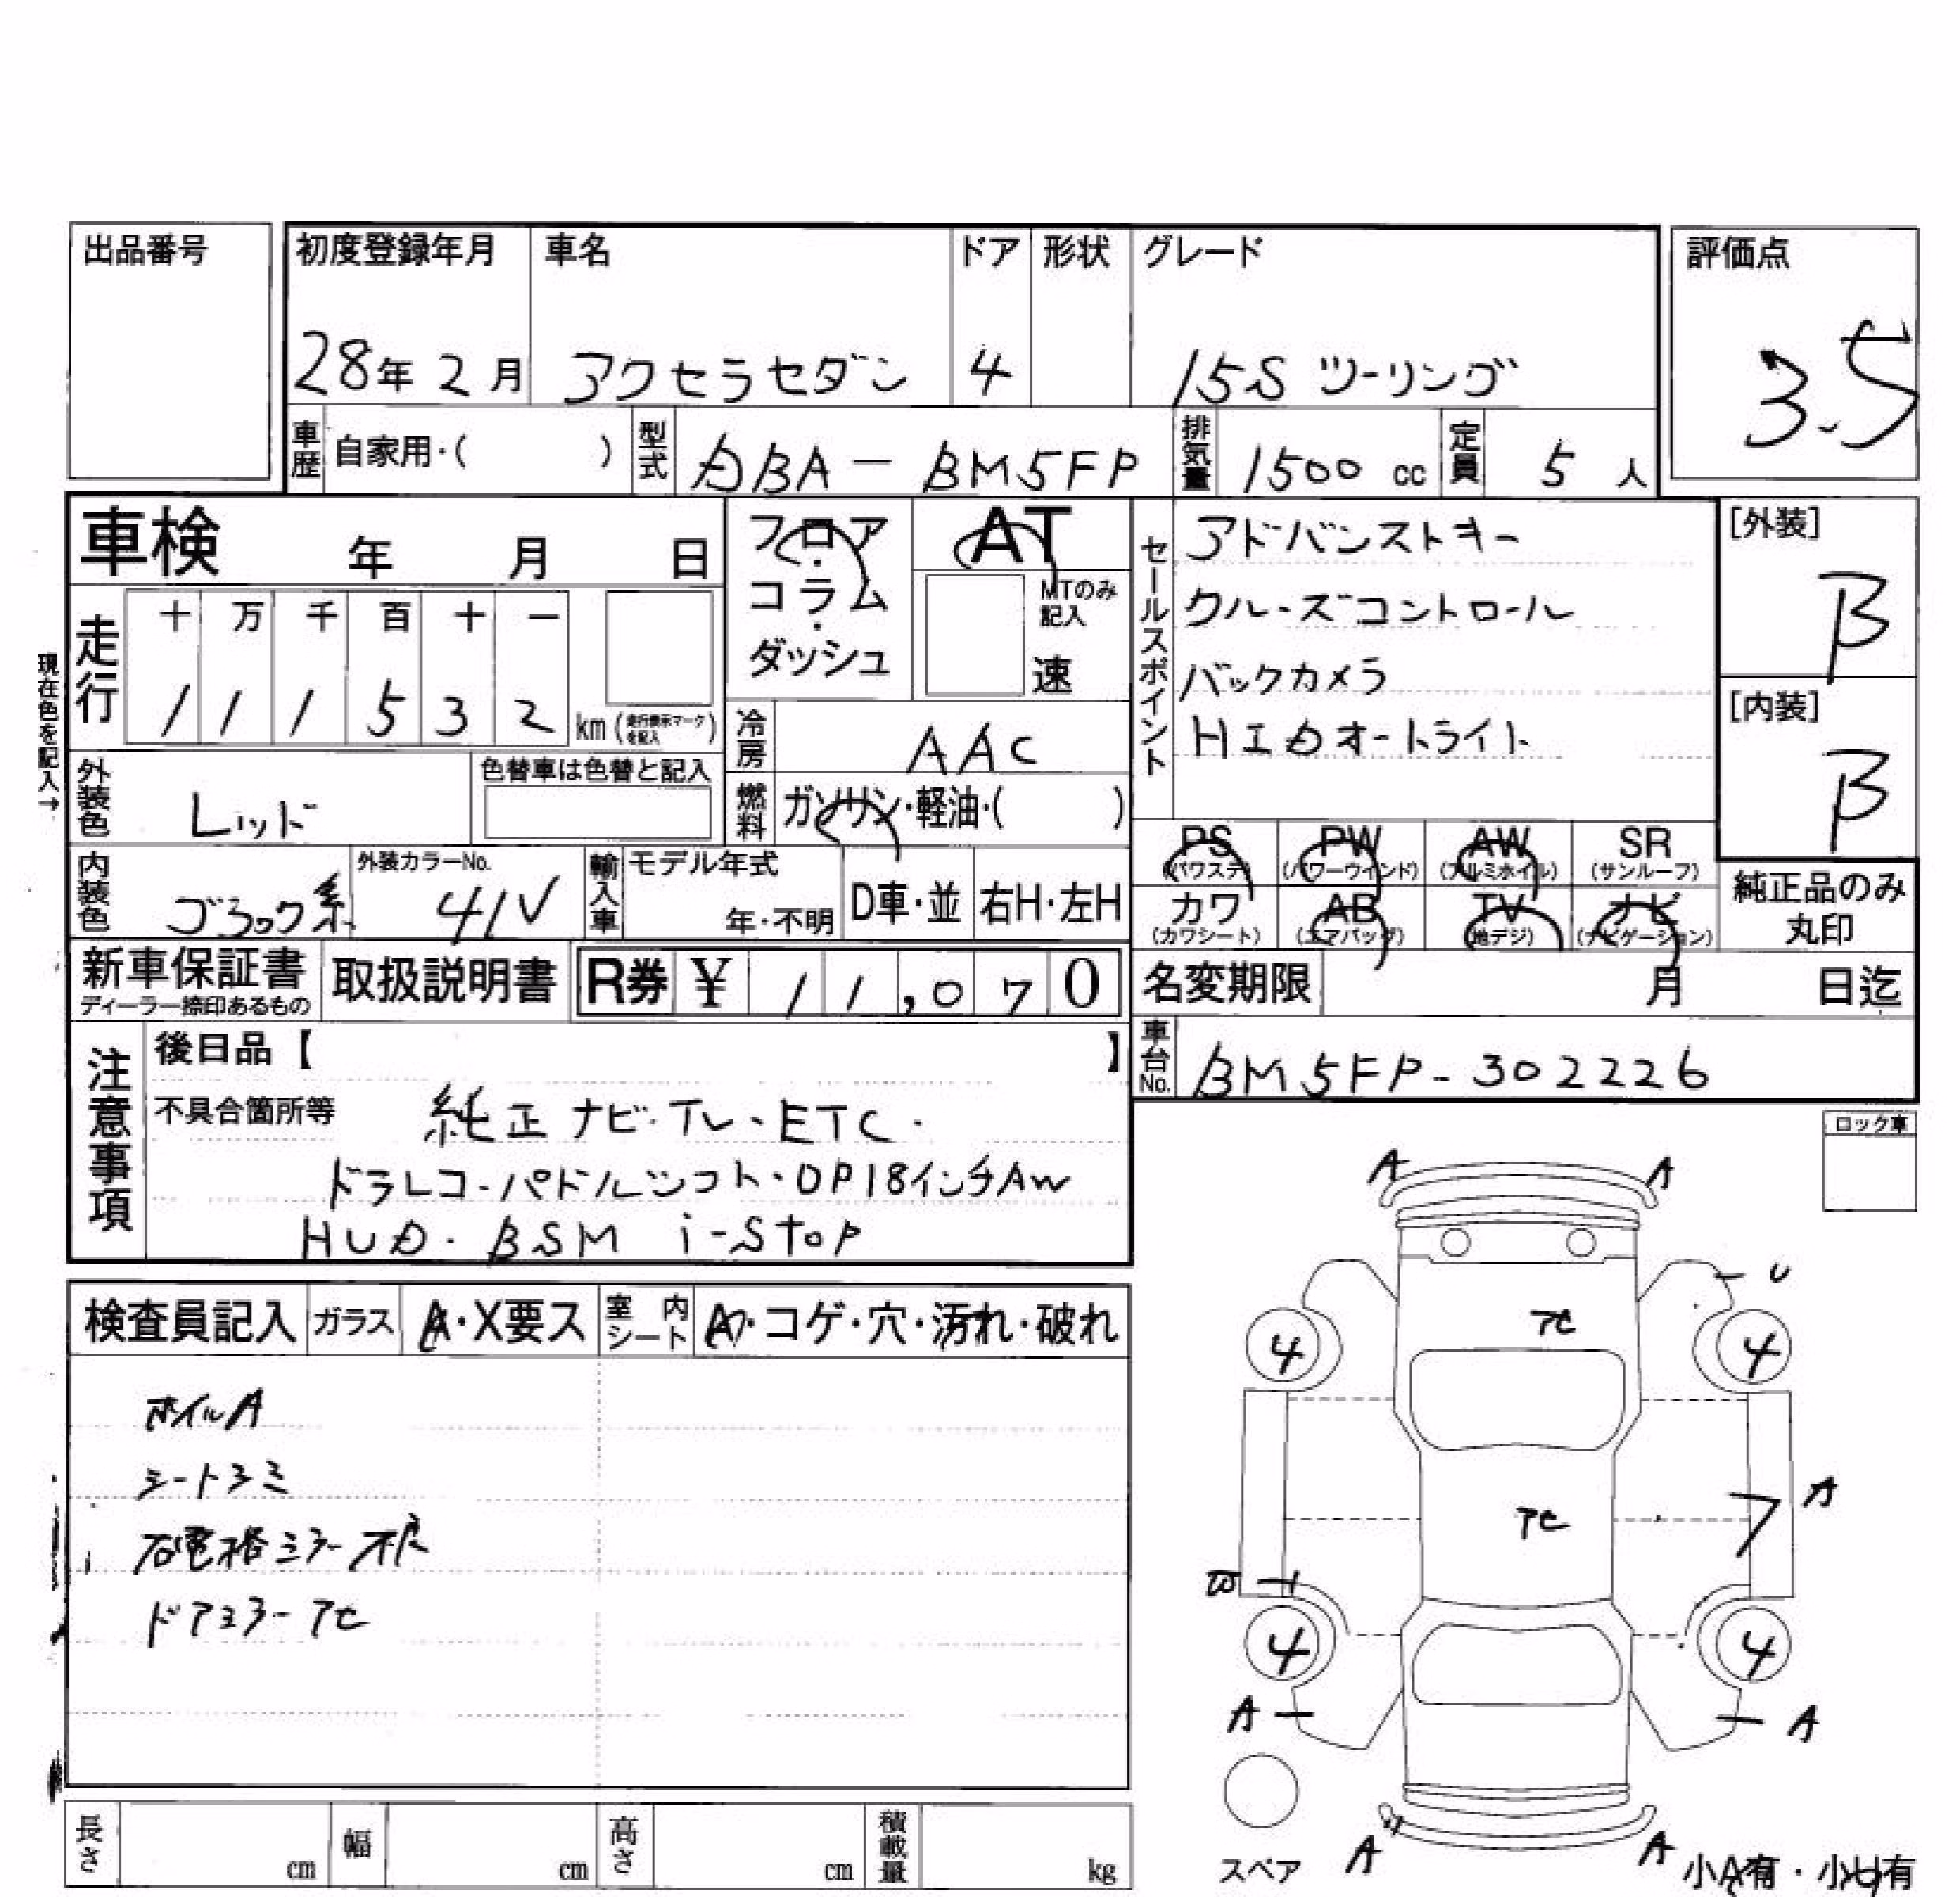 出品番号
初度登録年月 車名 ドア 形状 グレード 評価点
28年 2月 アクセラセダン 4 15S ツーリング 3.5
車歴 自家用・( ) 型式 DBA-BM5FP 排気量 1500 cc 定員 5 人
車検 年 月 日
フロア・コラム・ダッシュ
AT
MTのみ記入
速
セールスポイント
アドバンストキー
クルーズコントロール
バックカメラ
HIDオートライト
[外装]
B
[内装]
B
現在色を記入→
走行 十 万 千 百 十 一
1 1 1 5 3 2 km (走行表示マークを記入)
冷房 AAC
燃料 ガソリン・軽油・( )
外装色 レッド
色替車は色替と記入
内装色 ブラック系
外装カラーNo. 41V
輸入車 モデル年式 年・不明 D車・並 右H・左H
PS (パワステ) PW (パワーウィンド) AW (アルミホイル) SR (サンルーフ)
カワ (カワシート) AB (エアバッグ) TV (地デジ) ナビ (ナビゲーション)
純正品のみ丸印
新車保証書 ディーラー捺印あるもの
取扱説明書
R券 ¥ 11,070
名変期限 月 日迄
車台No. BM5FP-302226
注意事項
後日品【 】
不具合箇所等 純正ナビ・TV・ETC・
ドラレコ・パドルシフト・OP18インチAW
HUD・BSM i-stop
ロック車
検査員記入 ガラス A・X要ス 室内シート A・コゲ・穴・汚れ・破れ
ホイルA
シートシミ
右電格ミラー不良
ドアミラーアセ
A A
U
アセ
4 4
A
アセ
ア
W
4 4
A A
スペア A A 小A有・小U有
長さ cm 幅 cm 高さ cm 積載量 kg